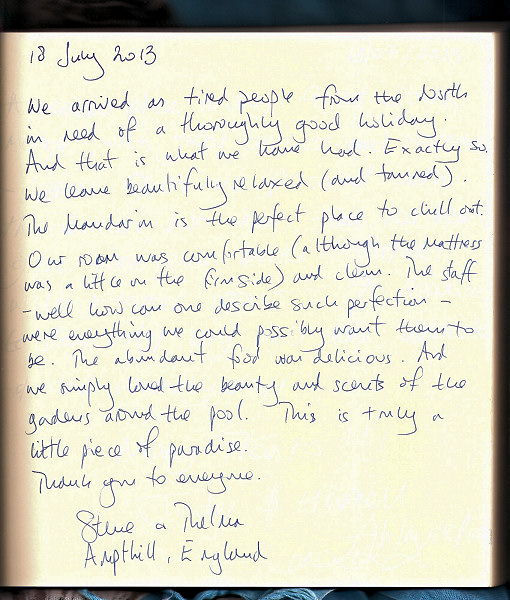 18 July 2013
We arrived as tired people from the North
in need of a thoroughly good holiday.
And that is what we have had. Exactly so.
We leave beautifully relaxed (and tanned).
The Mandarin is the perfect place to chill out.
Our room was comfortable (although the mattress
was a little on the firm side) and clean. The staff
- well how can one describe such perfection -
were everything we could possibly want them to
be. The abundant food was delicious. And
we simply loved the beauty and scents of the
gardens around the pool. This is truly a
little piece of paradise.
Thank you to everyone.
Steve & Thelma
Ampthill, England